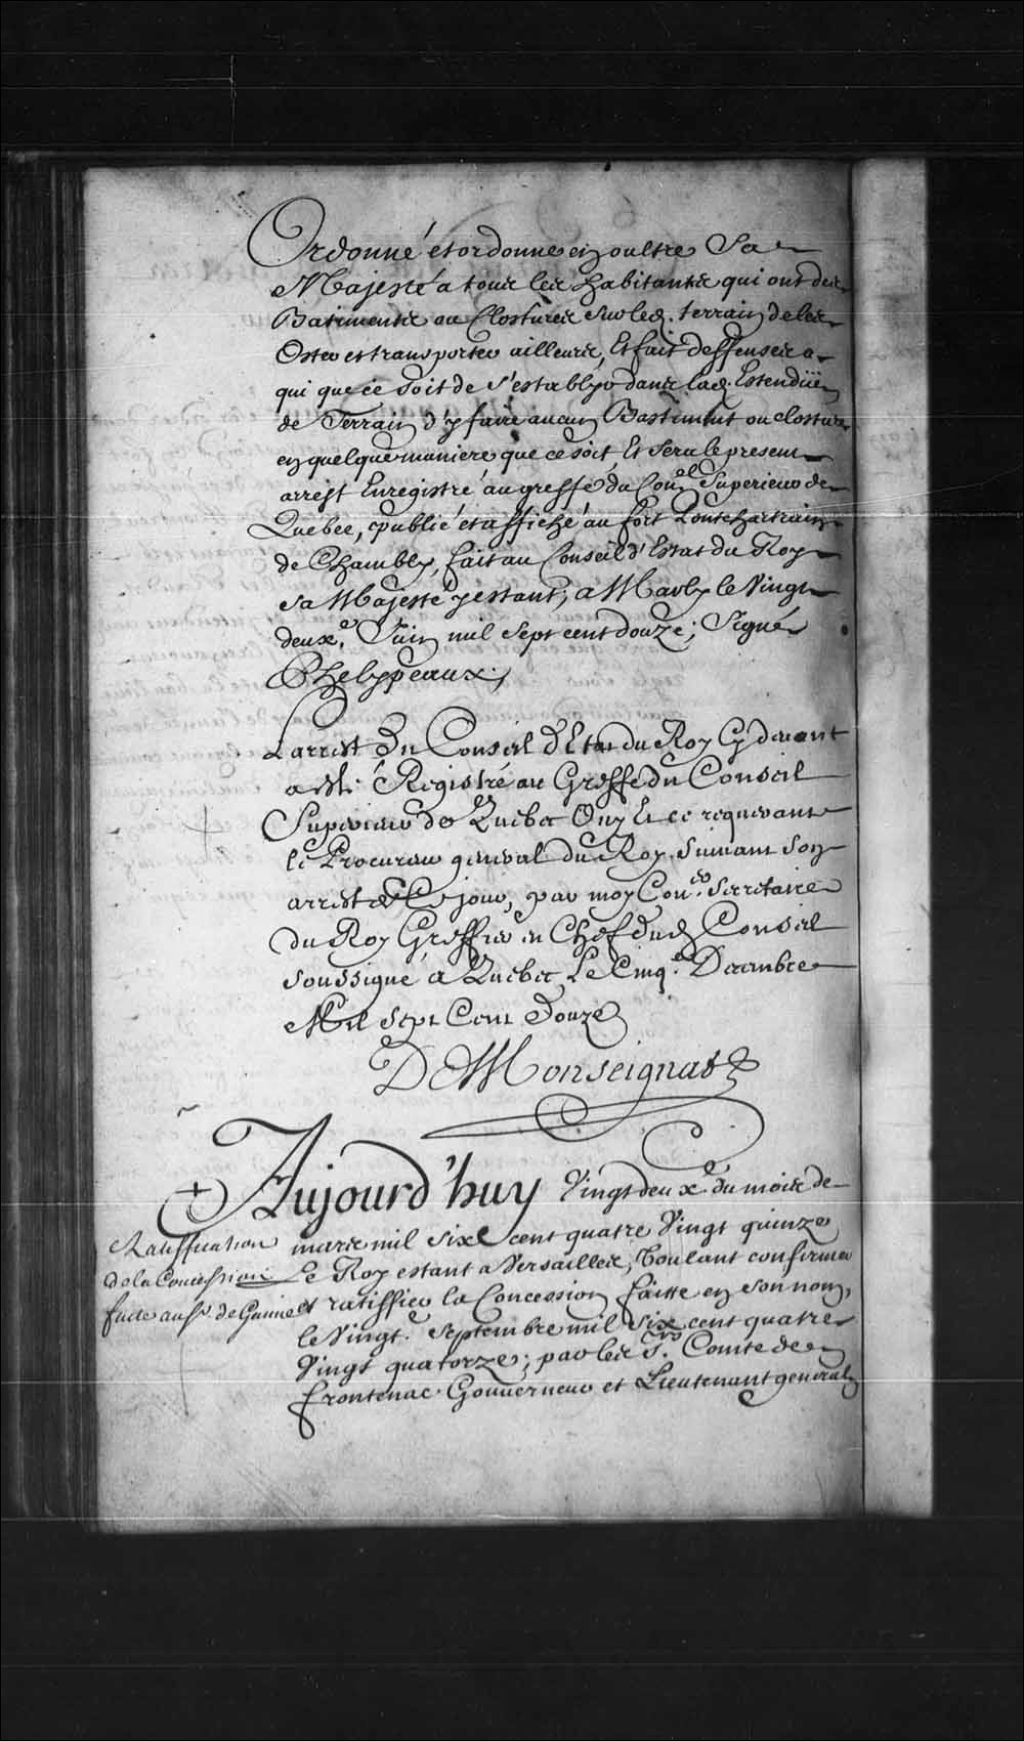 Ordonné et ordonne en oultre Sa
Majesté a tous les habitants qui ont des
Batiments ou Clostures sur led. terrain de les
Oster et transporter ailleurs, Et fait deffenses a
qui que ce soit de s'establyr dans lad. Estendüe
de Terrain d'y faire aucun Bastiment ou closture
en quelque maniere que ce soit, Et sera le present
arrest Enregistré au greffe du Con.el Superieur de
Quebec, publié et affiché au fort Pontchartrain
de Chambly, fait au Conseil d'Estat du Roy
sa Majesté y estant, a Marly le Vingt
deuxe. Juin mil sept cent douze; Signé
Phelypeaux;
Larrest du Conseil d'Etat du Roy Cy devant
a esté Registré au Greffe du Conseil
Superieur de Quebec Ouy Et ce requerant
le Procureur general du Roy suivant son
arrest de Ce jour, par moy Con.er Secretaire
du Roy Greffier en Chef dud. Conseil
soussigné a Quebec Le Cinq.e Decembre
Mil Sept Cent Douze
DeMonseignat
Aujourd'huy Vingt deuxe du mois de
mars mil six cent quatre Vingt quinze
Le Roy estant a Versailles, Voulant confirmer
et ratiffier la Concession faitte en son nom,
le Vingt. Septembre mil six cent quatre
Vingt quatorze; par les S.rs Comte de
frontenac Gouverneur et Lieutenant general
Ratiffication
de la Concession
faite au Sr. de